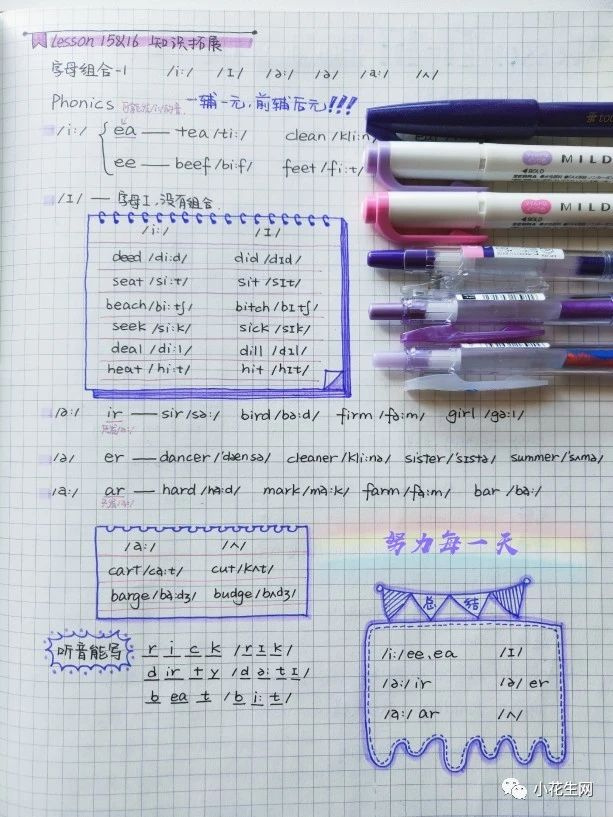 Lesson 15&16 知识拓展
字母组合-1 /i:/ /ɪ/ /ə:/ /ə/ /ɑ:/ /ʌ/
Phonics 一辅一元，前辅后元!!!
/i:/ ea — tea /ti:/ clean /kli:n/
ee — beef /bi:f/ feet /fi:t/
/ɪ/ — 字母I，没有组合.
/i:/ /ɪ/
deed /di:d/ did /dɪd/
seat /si:t/ sit /sɪt/
beach /bi:tʃ/ bitch /bɪtʃ/
seek /si:k/ sick /sɪk/
deal /di:l/ dill /dɪl/
heat /hi:t/ hit /hɪt/
/ə:/ ir — sir /sə:/ bird /bə:d/ firm /fə:m/ girl /gə:l/
/ə/ er — dancer /'dænsə/ cleaner /kli:nə/ sister /'sɪstə/ summer /'sʌmə/
/ɑ:/ ar — hard /hɑ:d/ mark /mɑ:k/ farm /fɑ:m/ bar /bɑ:/
/ɑ:/ /ʌ/
cart /cɑ:t/ cut /kʌt/
barge /bɑ:dʒ/ budge /bʌdʒ/
努力每一天
总结
/i:/ ee、ea /ɪ/
/ə:/ ir /ə/ er
/ɑ:/ ar /ʌ/
听音能写
r i c k /r ɪ k/
d ir t y /d ə: t ɪ/
b ea t /b i: t/
MILD
MILD
小花生网